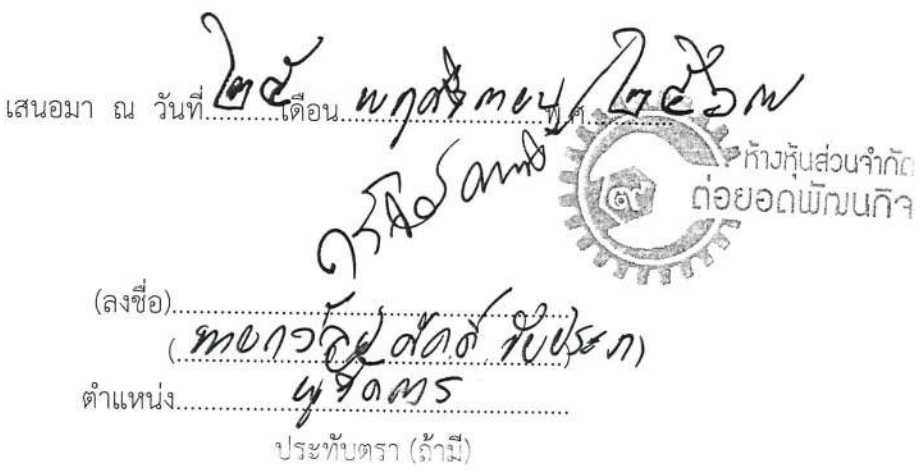 เสนอมา ณ วันที่ ๒๕ เดือน พฤศจิกายน พ.ศ. ๒๕๖๗
ห้างหุ้นส่วนจำกัด
ต่อยอดพัฒนกิจ
๙
(ลงชื่อ)
ศักดิ์
ตำแหน่ง ผู้จัดการ
ประทับตรา (ถ้ามี)